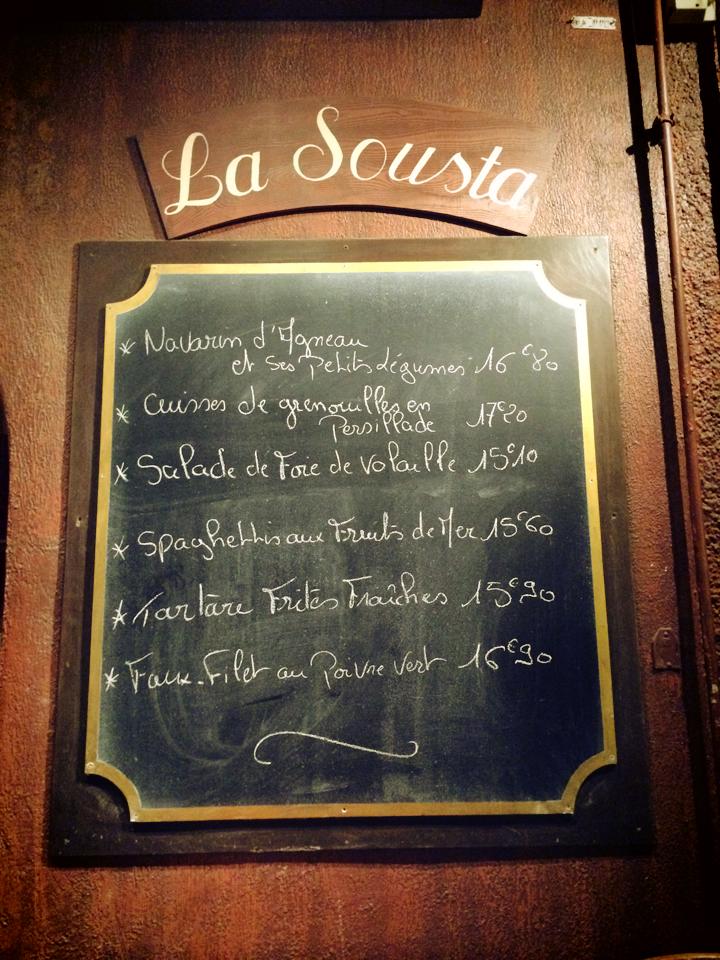 La Sousta
* Navarin d'Agneau
et ses Petits Légumes 16€80
* Cuisses de grenouilles en
Persillade 17€20
* Salade de Foie de Volaille 15€10
* Spaghettis aux Fruits de Mer 15€60
* Tartare Frites Fraîches 15€90
* Faux-Filet au Poivre Vert 16€90